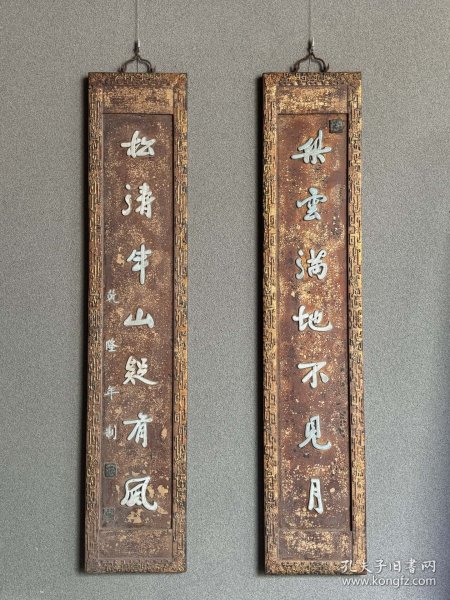 梨雲滿地不見月
松濤半山疑有風
乾隆年制
孔夫子旧书网
www.kongfz.com